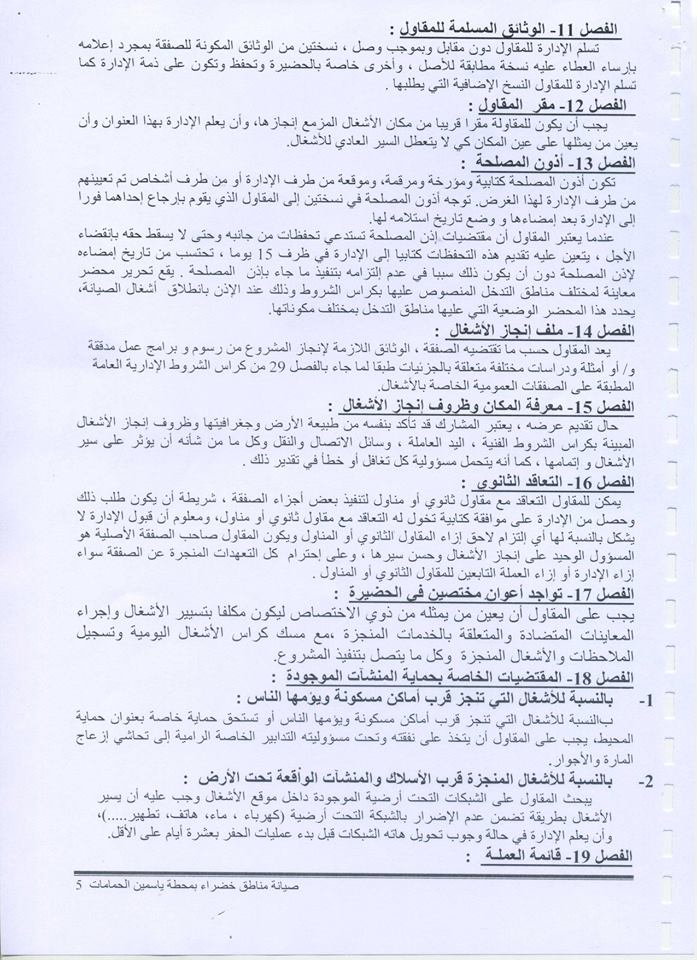 الفصل 11- الوثائق المسلمة للمقاول :
تسلم الإدارة للمقاول دون مقابل وبموجب وصل ، نسختين من الوثائق المكونة للصفقة بمجرد إعلامه
بإرساء العطاء عليه نسخة مطابقة للأصل ، وأخرى خاصة بالحضيرة وتحفظ وتكون على ذمة الإدارة كما
تسلم الإدارة للمقاول النسخ الإضافية التي يطلبها .
الفصل 12- مقر المقاول :
يجب أن يكون للمقاولة مقرا قريبا من مكان الأشغال المزمع إنجازها، وأن يعلم الإدارة بهذا العنوان وأن
يعين من يمثلها على عين المكان كي لا يتعطل السير العادي للأشغال.
الفصل 13- أذون المصلحة :
تكون أذون المصلحة كتابية ومؤرخة ومرقمة، وموقعة من طرف الإدارة أو من طرف أشخاص تم تعيينهم
من طرف الإدارة لهذا الغرض. توجه أذون المصلحة في نسختين إلى المقاول الذي يقوم بإرجاع إحداهما فورا
إلى الإدارة بعد إمضاءها و وضع تاريخ استلامه لها.
عندما يعتبر المقاول أن مقتضيات إذن المصلحة تستدعي تحفظات من جانبه وحتى لا يسقط حقه بإنقضاء
الأجل ، يتعين عليه تقديم هذه التحفظات كتابيا إلى الإدارة في ظرف 15 يوما ، تحتسب من تاريخ إمضاءه
لإذن المصلحة دون أن يكون ذلك سببا في عدم إلتزامه بتنفيذ ما جاء بإذن المصلحة . يقع تحرير محضر
معاينة لمختلف مناطق التدخل المنصوص عليها بكراس الشروط وذلك عند الإذن بانطلاق أشغال الصيانة،
يحدد هذا المحضر الوضعية التي عليها مناطق التدخل بمختلف مكوناتها.
الفصل 14- ملف إنجاز الأشغال :
يعد المقاول حسب ما تقتضيه الصفقة ، الوثائق اللازمة لإنجاز المشروع من رسوم و برامج عمل مدققة
و/ أو أمثلة ودراسات مختلفة متعلقة بالجزئيات طبقا لما جاء بالفصل 29 من كراس الشروط الإدارية العامة
المطبقة على الصفقات العمومية الخاصة بالأشغال.
الفصل 15- معرفة المكان وظروف إنجاز الأشغال :
حال تقديم عرضه ، يعتبر المشارك قد تأكد بنفسه من طبيعة الأرض وجغرافيتها وظروف إنجاز الأشغال
المبينة بكراس الشروط الفنية ، اليد العاملة ، وسائل الاتصال والنقل وكل ما من شأنه أن يؤثر على سير
الأشغال و إتمامها ، كما أنه يتحمل مسؤولية كل تغافل أو خطأ في تقدير ذلك .
الفصل 16- التعاقد الثانوي :
يمكن للمقاول التعاقد مع مقاول ثانوي أو مناول لتنفيذ بعض أجزاء الصفقة ، شريطة أن يكون طلب ذلك
وحصل من الإدارة على موافقة كتابية تخول له التعاقد مع مقاول ثانوي أو مناول، ومعلوم أن قبول الإدارة لا
يشكل بالنسبة لها أي إلتزام لاحق إزاء المقاول الثانوي أو المناول ويكون المقاول صاحب الصفقة الأصلية هو
المسؤول الوحيد على إنجاز الأشغال وحسن سيرها ، وعلى إحترام كل التعهدات المنجرة عن الصفقة سواء
إزاء الإدارة أو إزاء العملة التابعين للمقاول الثانوي أو المناول .
الفصل 17- تواجد أعوان مختصين في الحضيرة :
يجب على المقاول أن يعين من يمثله من ذوي الاختصاص ليكون مكلفا بتسيير الأشغال وإجراء
المعاينات المتضادة والمتعلقة بالخدمات المنجزة ،مع مسك كراس الأشغال اليومية وتسجيل
الملاحظات والأشغال المنجزة وكل ما يتصل بتنفيذ المشروع.
الفصل 18- المقتضيات الخاصة بحماية المنشآت الموجودة :
1- بالنسبة للأشغال التي تنجز قرب أماكن مسكونة ويؤمها الناس :
بالنسبة للأشغال التي تنجز قرب أماكن مسكونة ويؤمها الناس أو تستحق حماية خاصة بعنوان حماية
المحيط، يجب على المقاول أن يتخذ على نفقته وتحت مسؤوليته التدابير الخاصة الرامية إلى تحاشي إزعاج
المارة والأجوار.
2- بالنسبة للأشغال المنجزة قرب الأسلاك والمنشآت الواقعة تحت الأرض :
يبحث المقاول على الشبكات التحت أرضية الموجودة داخل موقع الأشغال وجب عليه أن يسير
الأشغال بطريقة تضمن عدم الإضرار بالشبكة التحت أرضية (كهرباء ، ماء، هاتف، تطهير.....)،
وأن يعلم الإدارة في حالة وجوب تحويل هاته الشبكات قبل بدء عمليات الحفر بعشرة أيام على الأقل.
الفصل 19- قائمة العملـة :
صيانة مناطق خضراء بمحطة ياسمين الحمامات 5